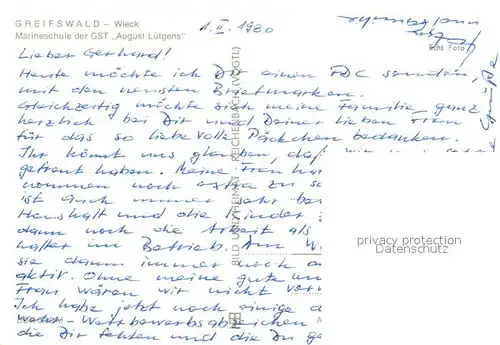 GREIFSWALD – Wieck
Marineschule der GST „August Lütgens"
1. II. 1980
und Familie
Echt Foto
Grüße
Lieber Gerhard!
Heute möchte ich Dir einen FDC senden,
mit den neusten Briefmarken.
Gleichzeitig möchte sich meine Familie ganz
herzlich bei Dir und Deiner lieben Frau
für das so liebevolle Päckchen bedanken.
Ihr könnt uns glauben, daß wir uns
gefreut haben. Meine Frau hat
nommen noch extra zu
ist auch immer sehr
Haushalt und die Kinder
dann noch die Arbeit als
halter im Betrieb. Am W.
sie dann immer noch
aktiv. Ohne meine gute
Frau wären wir nicht
Ich habe jetzt noch einige
Wettbewerbsabzeichen
die Dir fehlten und die Du
BILD UND HEIMAT REICHENBACH (VOGTL)
privacy protection
Datenschutz